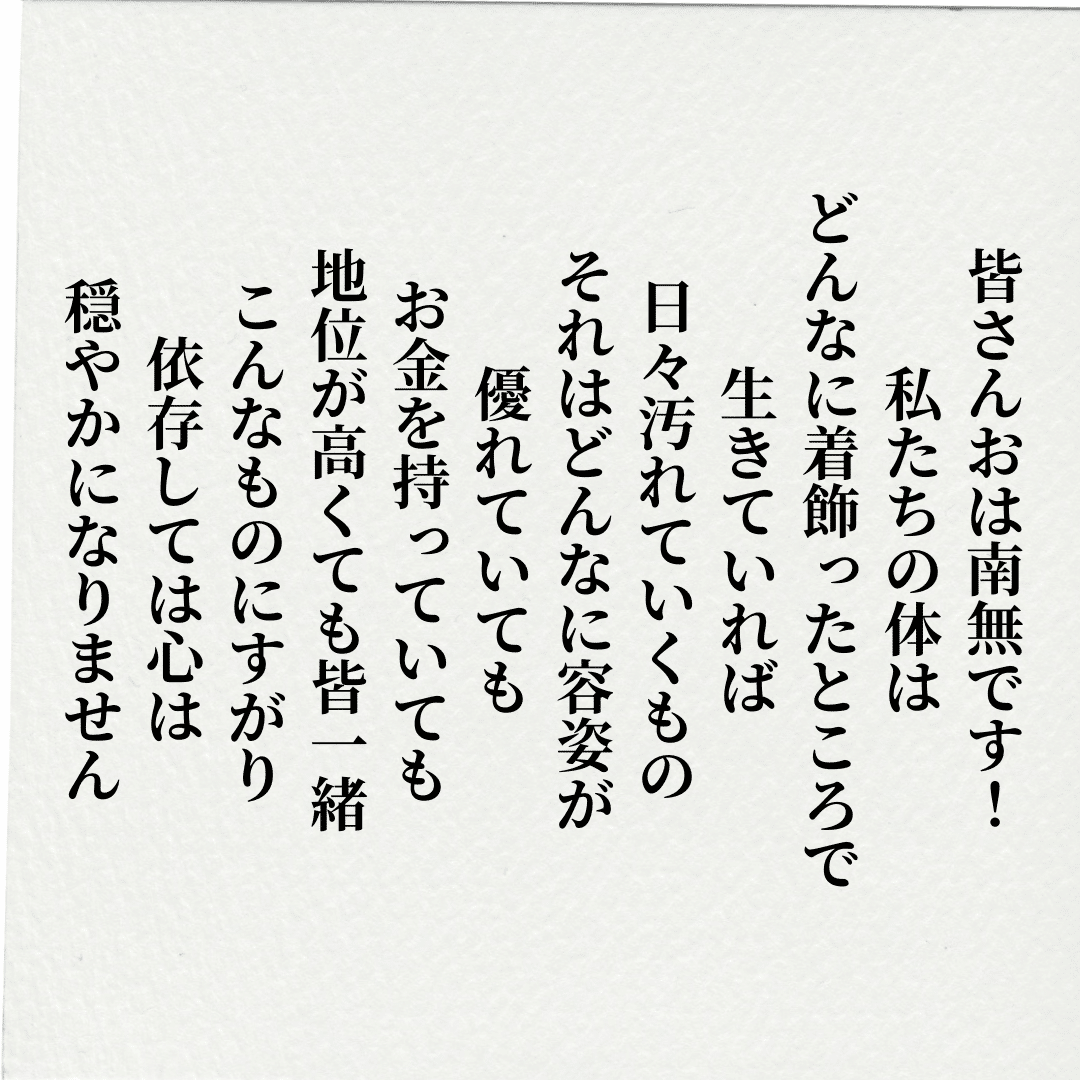 皆さんおは南無です！
私たちの体は
どんなに着飾ったところで
生きていれば
日々汚れていくもの
それはどんなに容姿が
優れていても
お金を持っていても
地位が高くても皆一緒
こんなものにすがり
依存しては心は
穏やかになりません